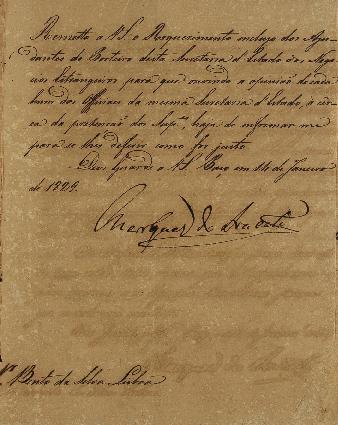 Remetto a V.S. o Requerimento incluso dos Aju-
dantes do Porteiro desta Secretaria d'Estado dos Nego-
cios Estrangeiros para que ouvindo a opinião de cada
hum dos Officiaes da mesma Secretaria d'Estado, á cer-
ca da pretenção dos Supes., haja de informar me
para se lhes deferir como for justo.
Deos Guarde a V.S. Paço em 14 de Janeiro
de 1829.
Marquez de Aracaty
Bento da Silva Lisboa